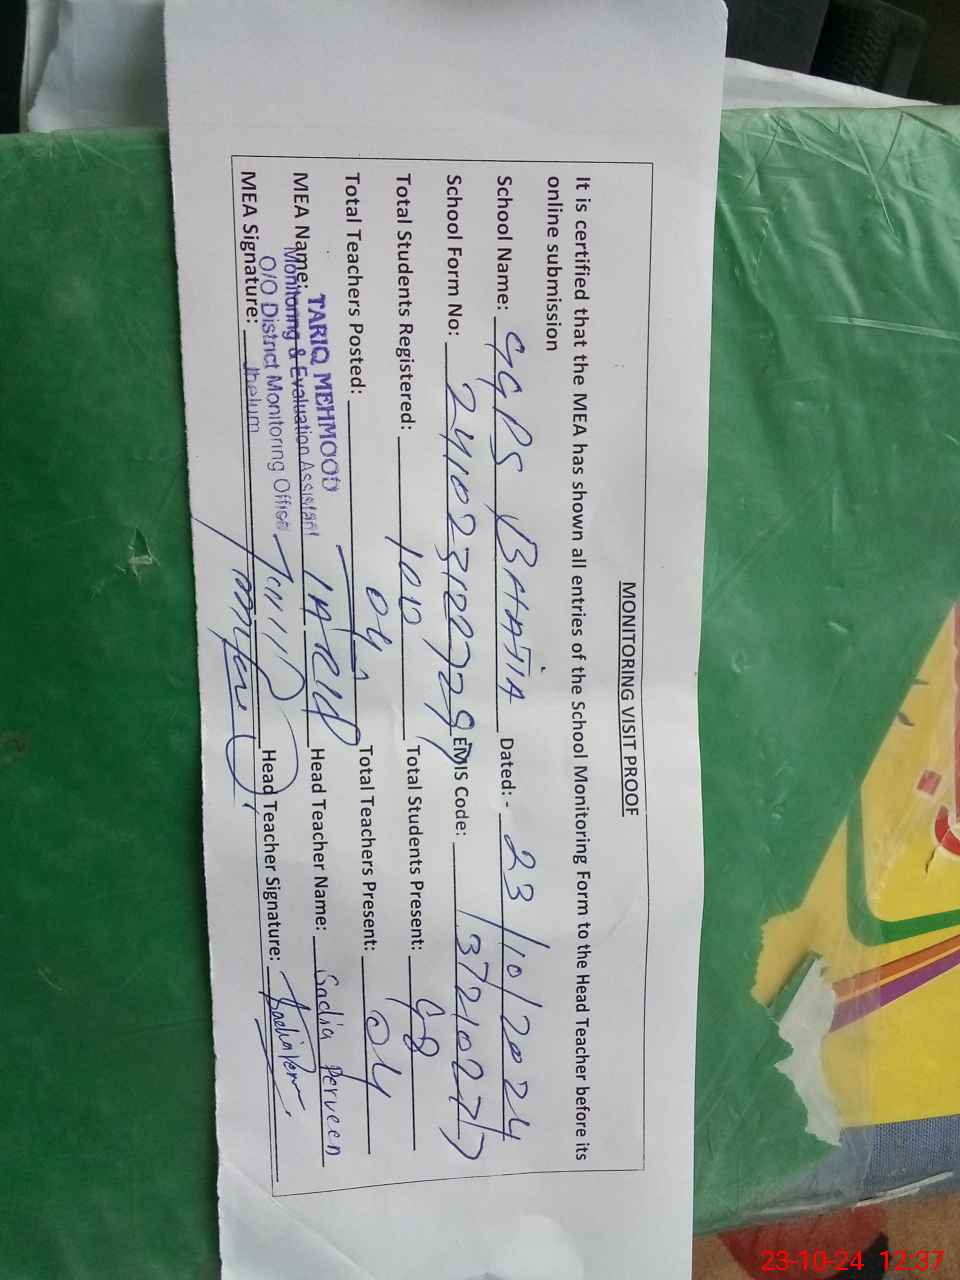 MONITORING VISIT PROOF
It is certified that the MEA has shown all entries of the School Monitoring Form to the Head Teacher before its
online submission
School Name: GGPS BAHATIA Dated: - 23/10/2024
School Form No: EMIS Code: 37210277
Total Students Registered: 100 Total Students Present: 98
Total Teachers Posted: 04 Total Teachers Present: 04
MEA Name: TARIQ Head Teacher Name: Sadia Perveen
MEA Signature: Head Teacher Signature:
TARIQ MEHMOOD
Monitoring & Evaluation Assistant
O/O District Monitoring Officer
Jhelum
23-10-24 12:37